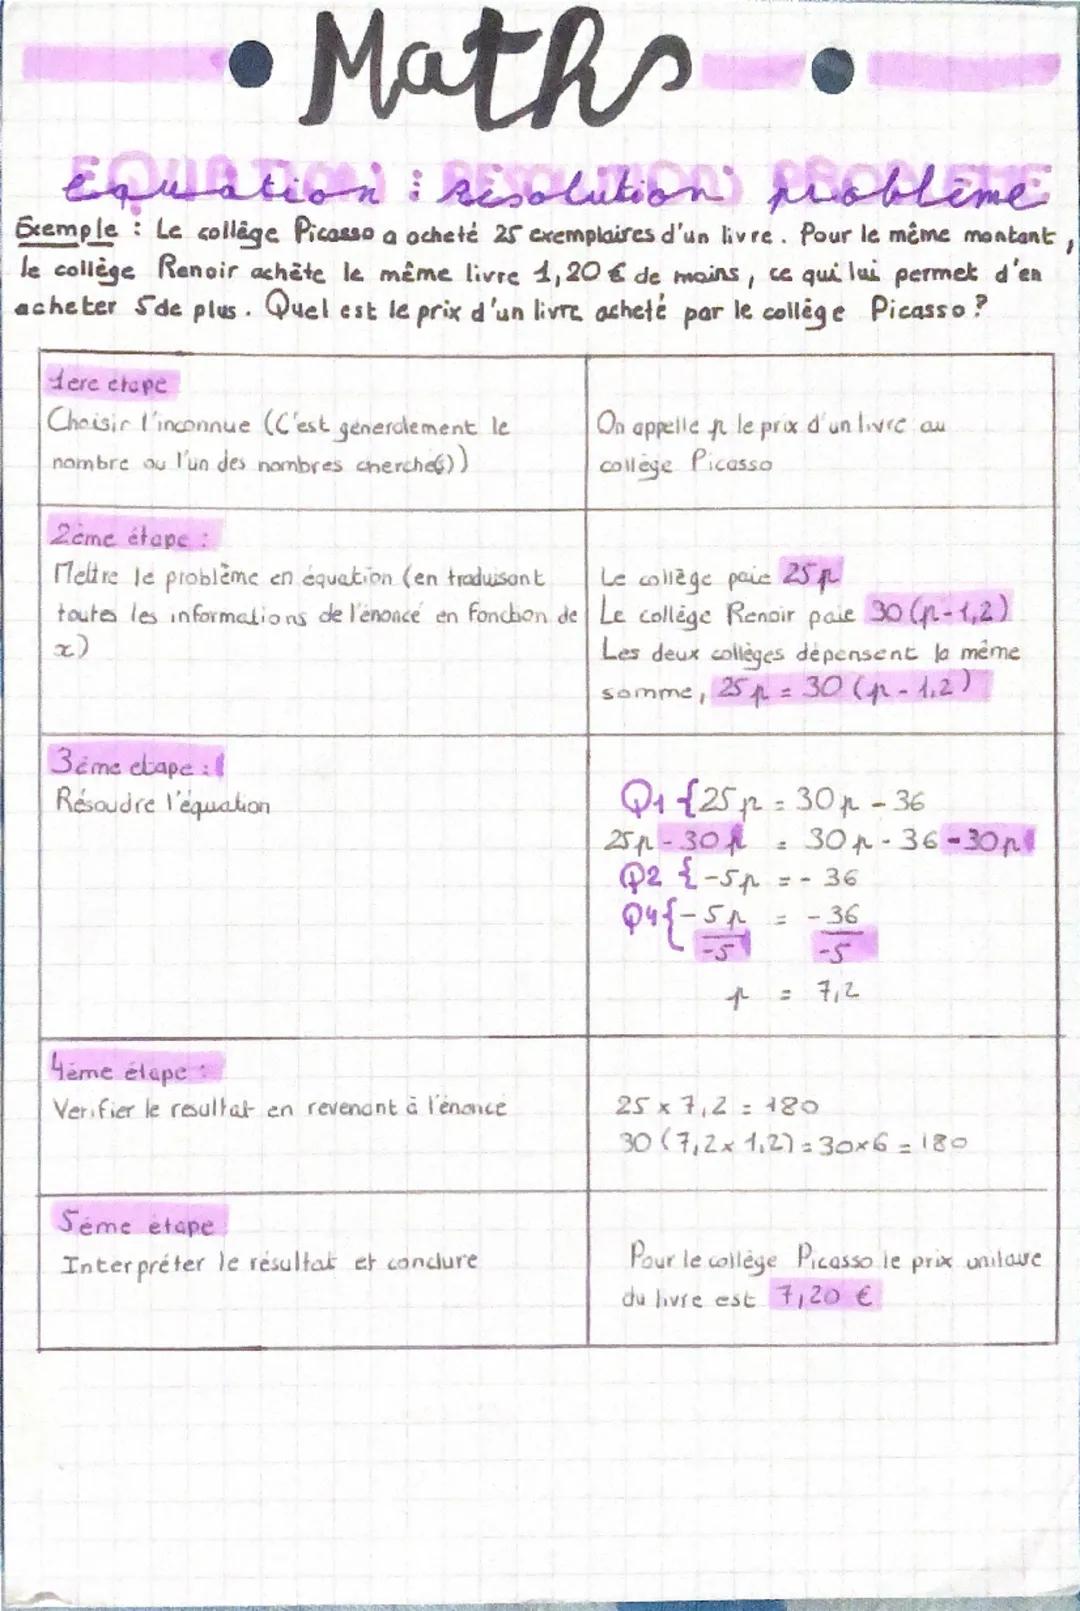 Maths
équation : résolution problème
Exemple : Le collège Picasso a acheté 25 exemplaires d'un livre. Pour le même montant,
le collège Renoir achète le même livre 1,20 € de moins, ce qui lui permet d'en
acheter 5 de plus. Quel est le prix d'un livre acheté par le collège Picasso ?
1ere étape
Choisir l'inconnue (C'est généralement le
nombre ou l'un des nombres cherché(s))
On appelle p le prix d'un livre au
collège Picasso
2ème étape :
Mettre le problème en équation (en traduisant
toutes les informations de l'énoncé en fonction de
x)
Le collège paie 25p
Le collège Renoir paie 30(p-1,2)
Les deux collèges dépensent la même
somme, 25p = 30 (p - 1,2)
3ème étape :
Résoudre l'équation
Q1 {25p = 30p - 36
25p - 30p = 30p - 36 - 30p
Q2 {-5p = - 36
Q4 {-5p = -36
-5 -5
p = 7,2
4ème étape :
Verifier le resultat en revenant à l'énoncé
25 x 7,2 = 180
30 (7,2 x 1,2) = 30x6 = 180
5éme étape
Interpréter le résultat et conclure
Pour le collège Picasso le prix unitaire
du livre est 7,20 €